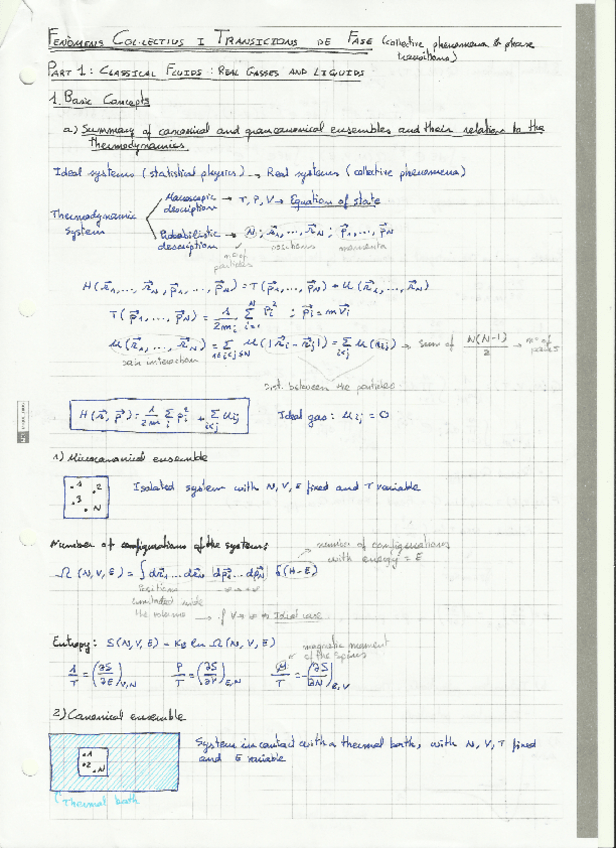 FENÒMENS COL·LECTIUS I TRANSICIONS DE FASE (collective phenomena & phase transitions)
PART 1: CLASSICAL FLUIDS: REAL GASSES AND LIQUIDS
1. Basic Concepts
a) Summary of canonical and grancanonical ensembles and their relation to the thermodynamics
Ideal systems (statistical physics) → Real systems (collective phenomena)
Thermodynamic system
Macroscopic description → T, P, V → Equation of state
Probabilistic description → N; r⃗₁, ..., r⃗N; p⃗₁, ..., p⃗N
nº of particles positions momenta
H(r⃗₁, ..., r⃗N, p⃗₁, ..., p⃗N) = T(p⃗₁, ..., p⃗N) + U(r⃗₁, ..., r⃗N)
T(p⃗₁, ..., p⃗N) = 1/2m Σ p⃗i² ; p⃗i = m v⃗i
U(r⃗₁, ..., r⃗N) = Σ 1≤i<j≤N U(|r⃗i - r⃗j|) = Σ i<j U(rij) → sum of N(N-1)/2 → nº of pairs
pair interaction
dist. between the particles
H(r⃗, p⃗) = 1/2m Σ i p⃗i² + Σ i<j Uij Ideal gas: Uij = 0
1) Microcanonical ensemble
·1 ·2 ·3 ·N
Isolated system with N, V, E fixed and T variable
Number of configurations of the system:
number of configurations with energy = E
Ω(N, V, E) = ∫ dr⃗₁ ... dr⃗N dp⃗₁ ... dp⃗N δ(H - E)
Positions
the volume → Ideal case
Entropy: S(N, V, E) = KB ln Ω(N, V, E)
magnetic moment of the spins
1/T = (∂S/∂E)V,N P/T = (∂S/∂V)E,N μ/T = -(∂S/∂N)E,V
2) Canonical ensemble
·1 ·2 ·N
System in contact with a thermal bath, with N, V, T fixed and E variable
Thermal bath